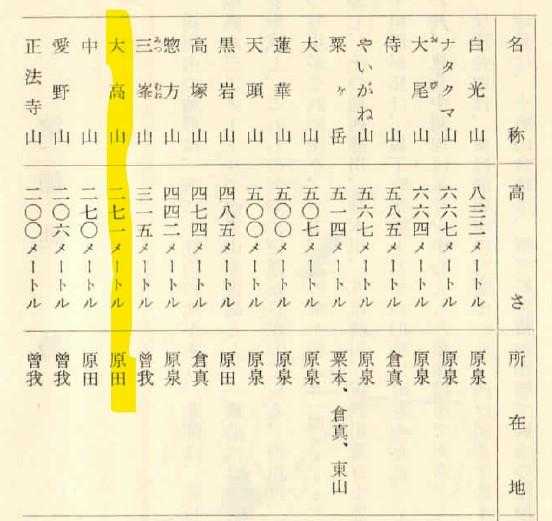 名称 高さ 所在地
白光山 八三二メートル 原泉
ナタクマ山 六六七メートル 原泉
大尾山 六六四メートル 原泉
侍山 五八五メートル 倉真
やいがね山 五六七メートル 原泉
粟ヶ岳 五一四メートル 粟本、倉真、東山
大山 五〇七メートル 原泉
蓮華山 五〇〇メートル 原泉
天頭山 五〇〇メートル 原泉
黒岩山 四八五メートル 原田
高塚山 四七四メートル 倉真
惣方山 四四二メートル 原泉
三峯山 三一五メートル 曾我
大高山 二七一メートル 原田
中山 二七〇メートル 原田
愛野山 二〇六メートル 曾我
正法寺山 二〇〇メートル 曾我